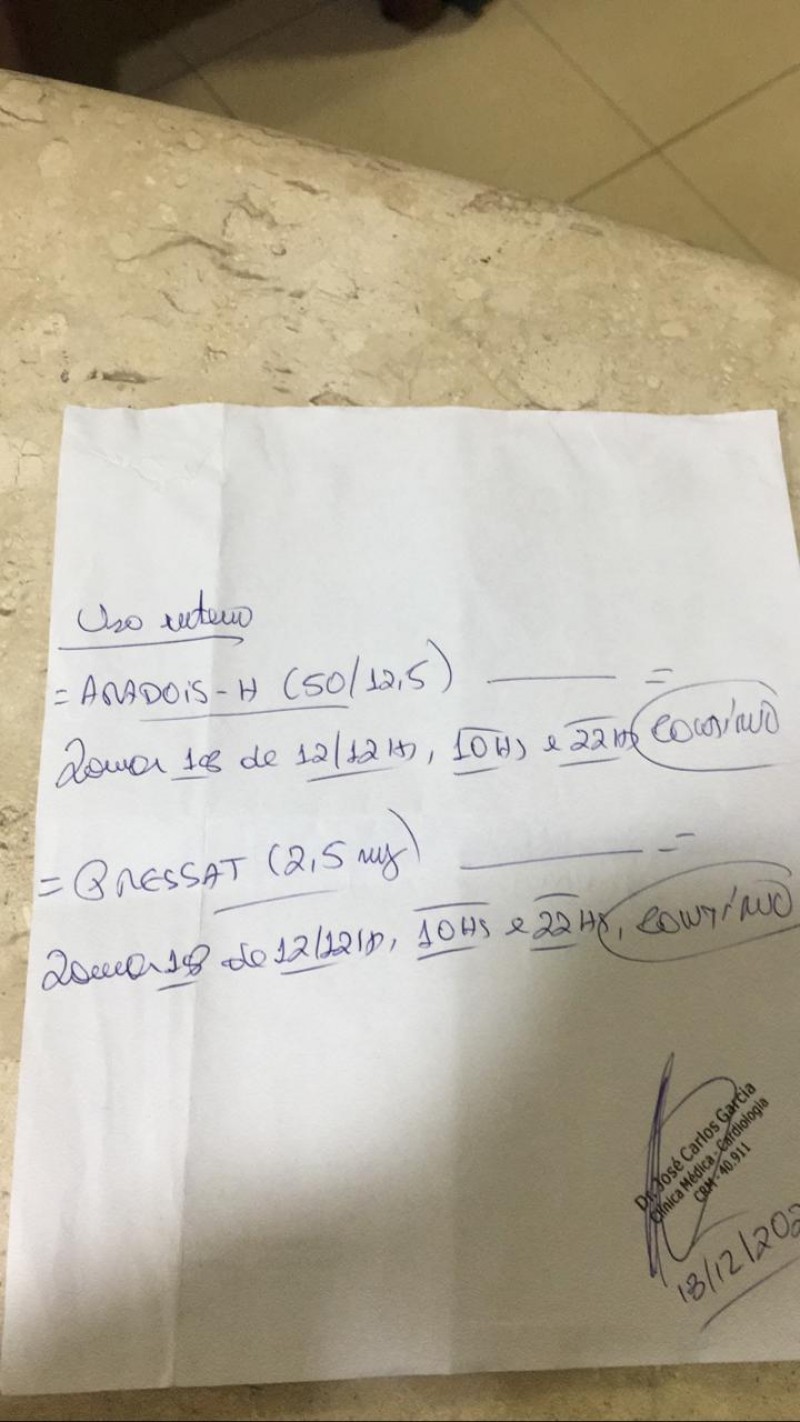 Uso interno
= ARADOIS-H (50/12,5) ——— =
Tomar 1cp de 12/12Hs, 10Hs e 22Hs, CONTÍNUO
= PRESSAT (2,5 mg) ——— =
Tomar 1cp de 12/12Hs, 10Hs e 22Hs, CONTÍNUO
Dr. José Carlos Garcia
Clínica Médica - Cardiologia
CRM - 40.911
18/12/202